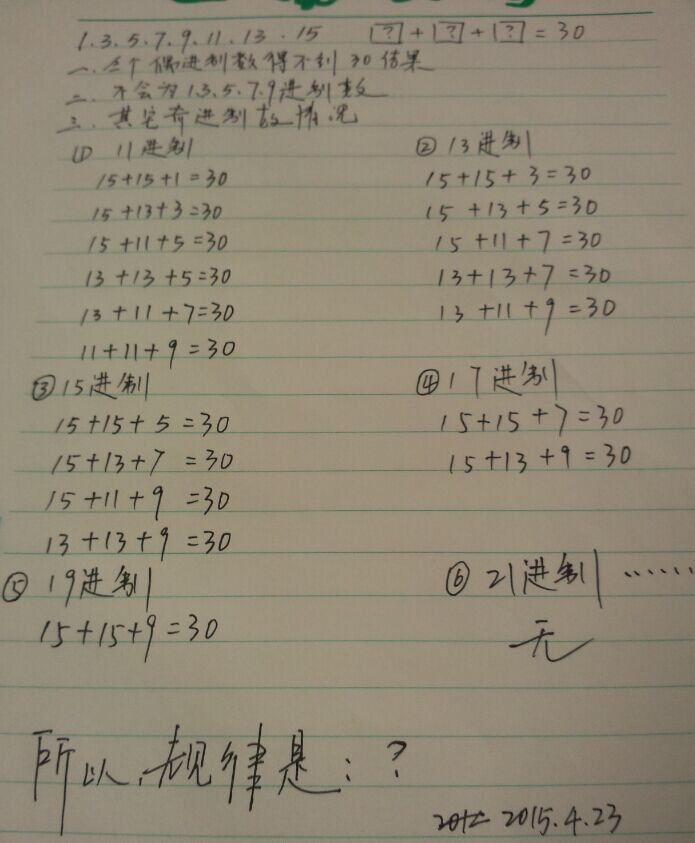 1.3.5.7.9.11.13.15 [?]+[?]+[?]=30
一.各个偶进制数得不到30结果
二.不会为1.3.5.7.9进制数
三.其它奇进制数情况
(1) 11进制
15+15+1=30
15+13+3=30
15+11+5=30
13+13+5=30
13+11+7=30
11+11+9=30
② 13进制
15+15+3=30
15+13+5=30
15+11+7=30
13+13+7=30
13+11+9=30
③ 15进制
15+15+5=30
15+13+7=30
15+11+9=30
13+13+9=30
④ 17进制
15+15+7=30
15+13+9=30
⑤ 19进制
15+15+9=30
⑥ 21进制 ......
无
所以,规律是:?
2015.4.23